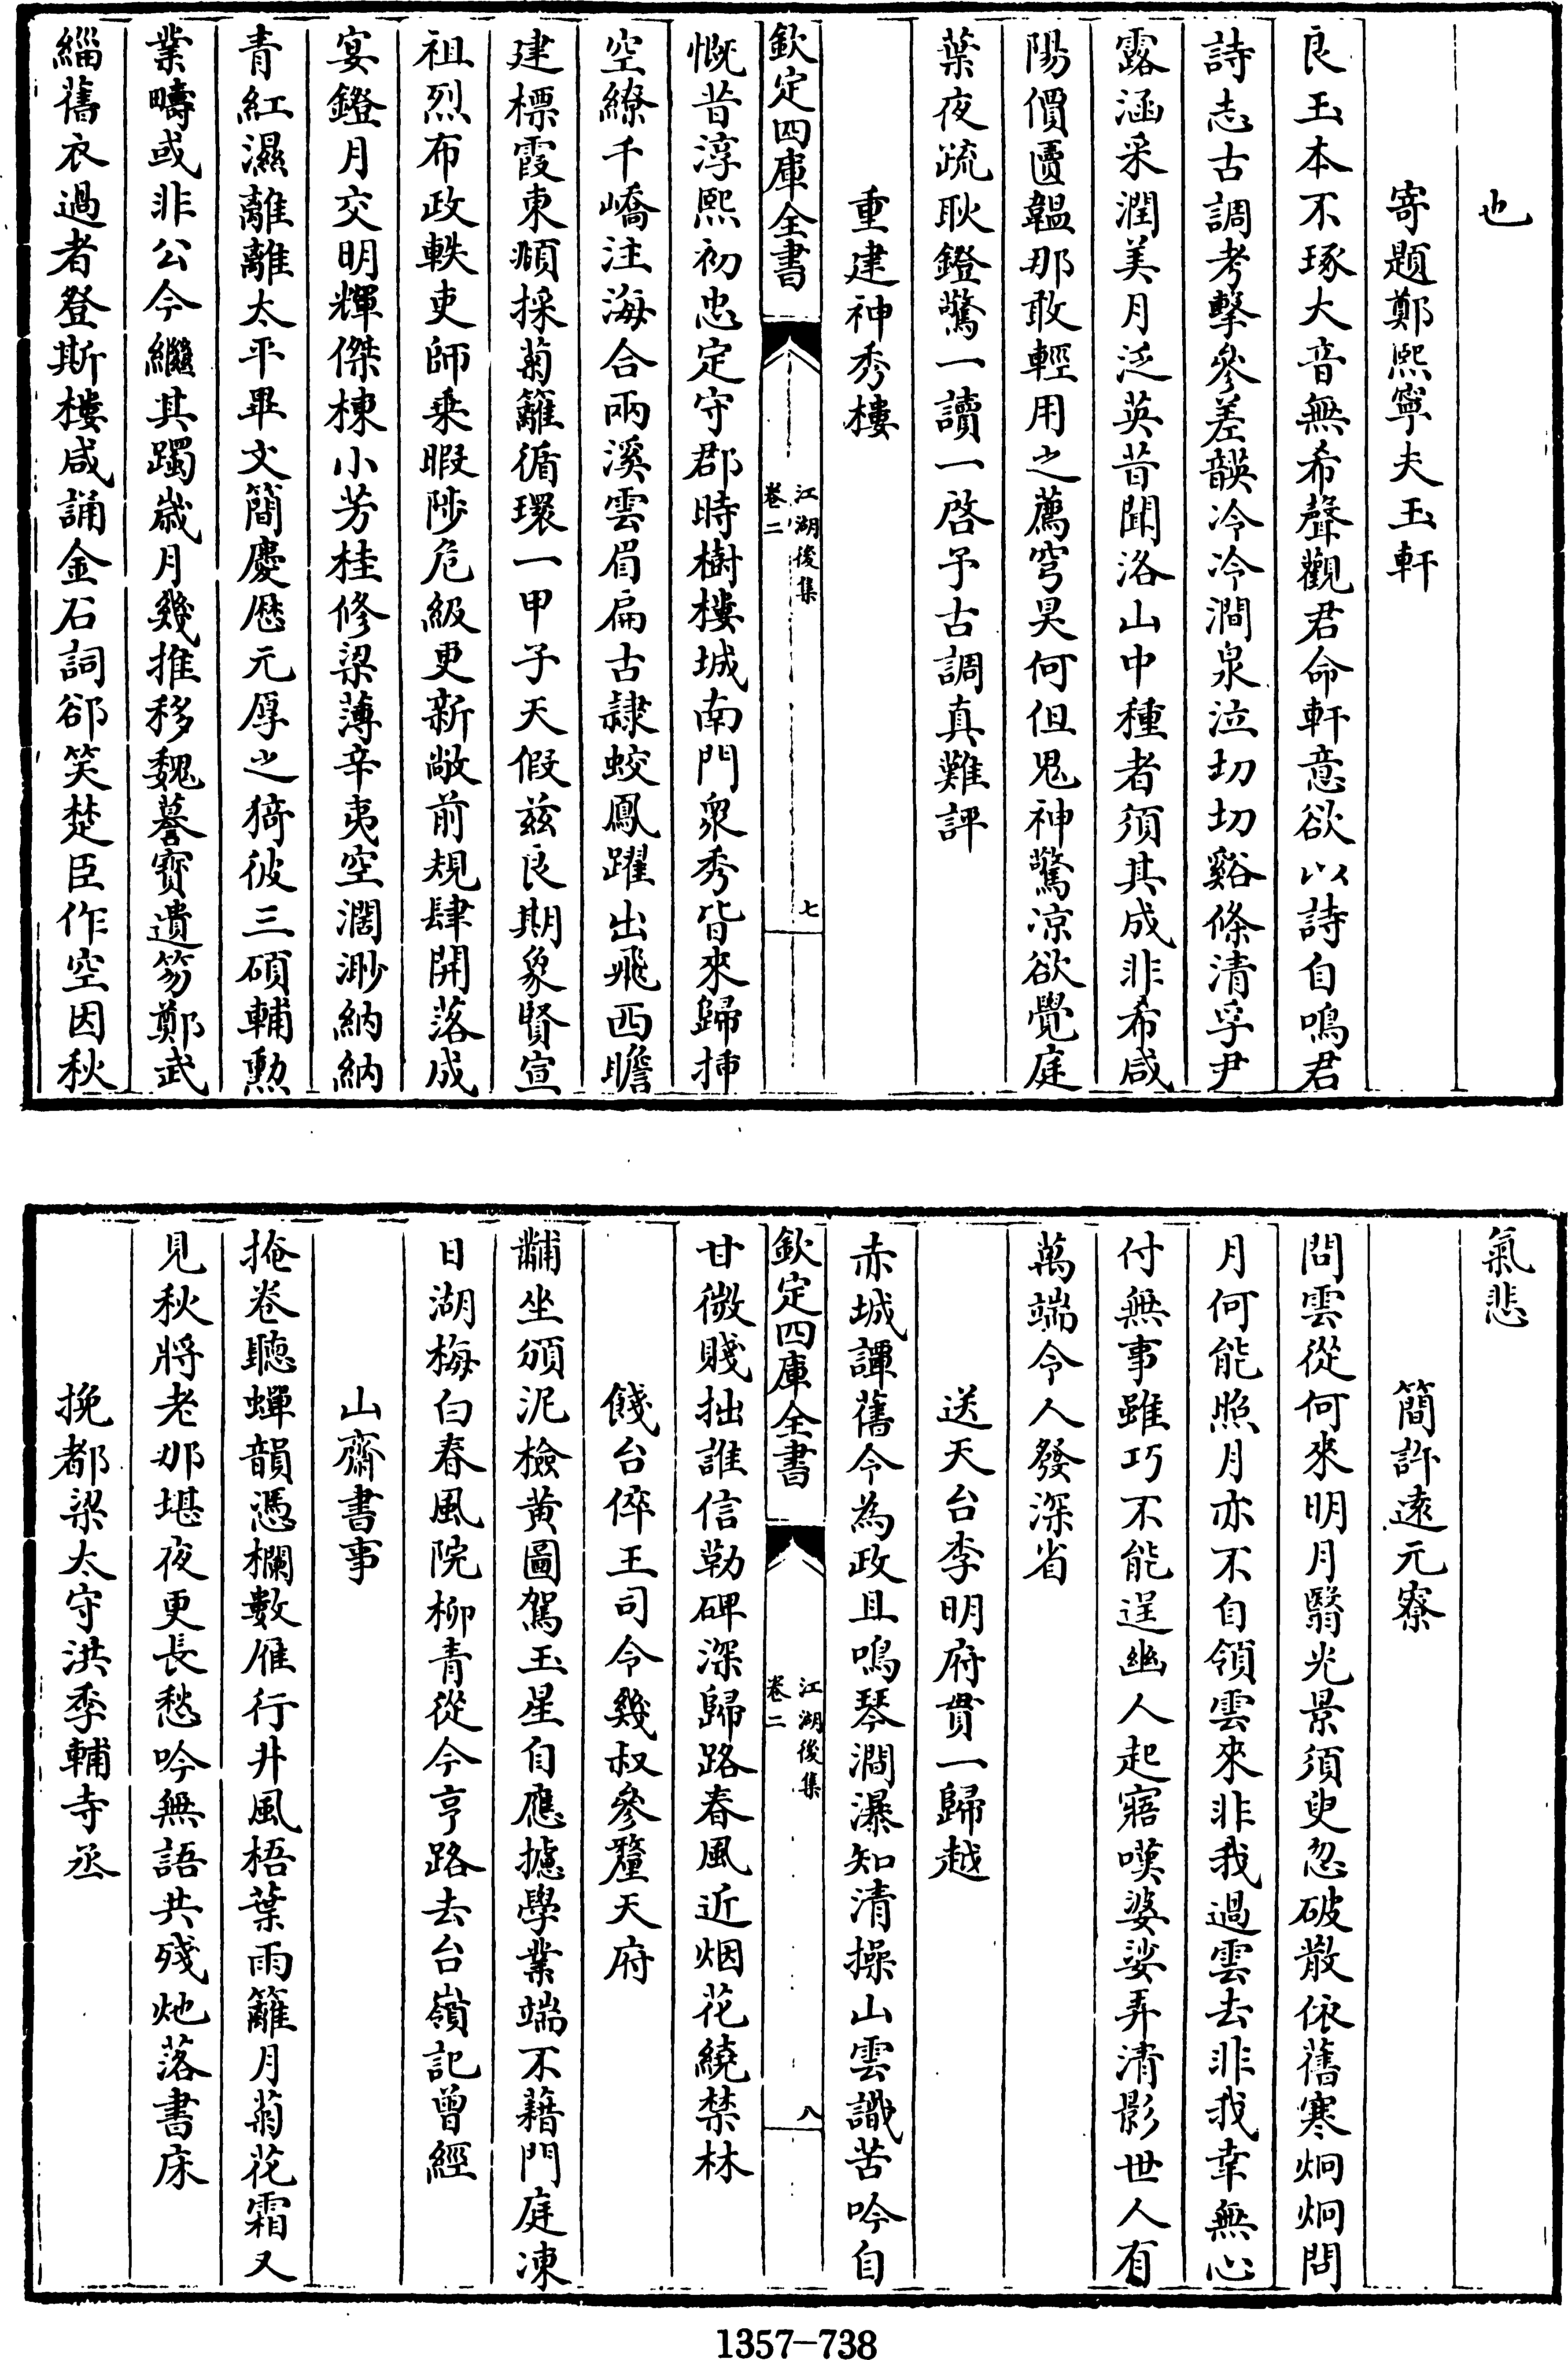 也
寄題鄭熙寧夫玉軒
良玉本不琢大音無希聲觀君命軒意欲以詩自鳴君
詩志古調考擊參差韺冷冷澗泉泣切切谿條清孚尹
露涵采潤美月泛英昔聞洛山中種者須其成非希咸
陽價匵韞那敢輕用之薦穹昊何但鬼神驚凉欲覺庭
葉夜疏耿鐙驚一讀一啓予古調真難評
重建神秀樓
欽定四庫全書
江湖後集
卷二
七
慨昔淳熙初忠定守郡時樹樓城南門衆秀皆來歸挿
空繚千嶠注海合兩溪雲眉扁古隷蛟鳳躍出飛西瞻
建標霞東頫採菊籬循環一甲子天假兹良期象賢宣
祖烈布政軼吏師乘暇陟危級更新敞前規肆開落成
宴鐙月交明輝傑棟小芳桂修梁薄辛夷空濶渺納納
青紅濕離離太平畢文簡慶厯元厚之猗彼三碩輔勲
業疇或非公今繼其躅嵗月幾推移魏謩寳遺笏鄭武
緇舊衣過者登斯樓咸誦金石詞郤笑楚臣作空因秋
氣悲
簡許遠元寮
問雲從何來明月翳光景須臾忽破散依舊寒炯炯問
月何能照月亦不自領雲來非我過雲去非我幸無心
付無事雖巧不能逞幽人起寤嘆婆娑弄清影世人有
萬端令人發深省
送天台李明府貫一歸越
赤城譚舊令為政且鳴琴澗瀑知清操山雲識苦吟自
欽定四庫全書
江湖後集
卷二
八
甘微賤拙誰信勒碑深歸路春風近烟花繞禁林
餞台倅王司令幾叔參釐天府
黼坐頒泥檢黄圖駕玉星自應攄學業端不藉門庭凍
日湖梅白春風院柳青從今亨路去台嶺記曾經
山齋書事
掩卷聽蟬韻憑欄數雁行井風梧葉雨籬月菊花霜又
見秋將老那堪夜更長愁吟無語共殘灺落書床
挽都梁太守洪季輔寺丞
1357-738